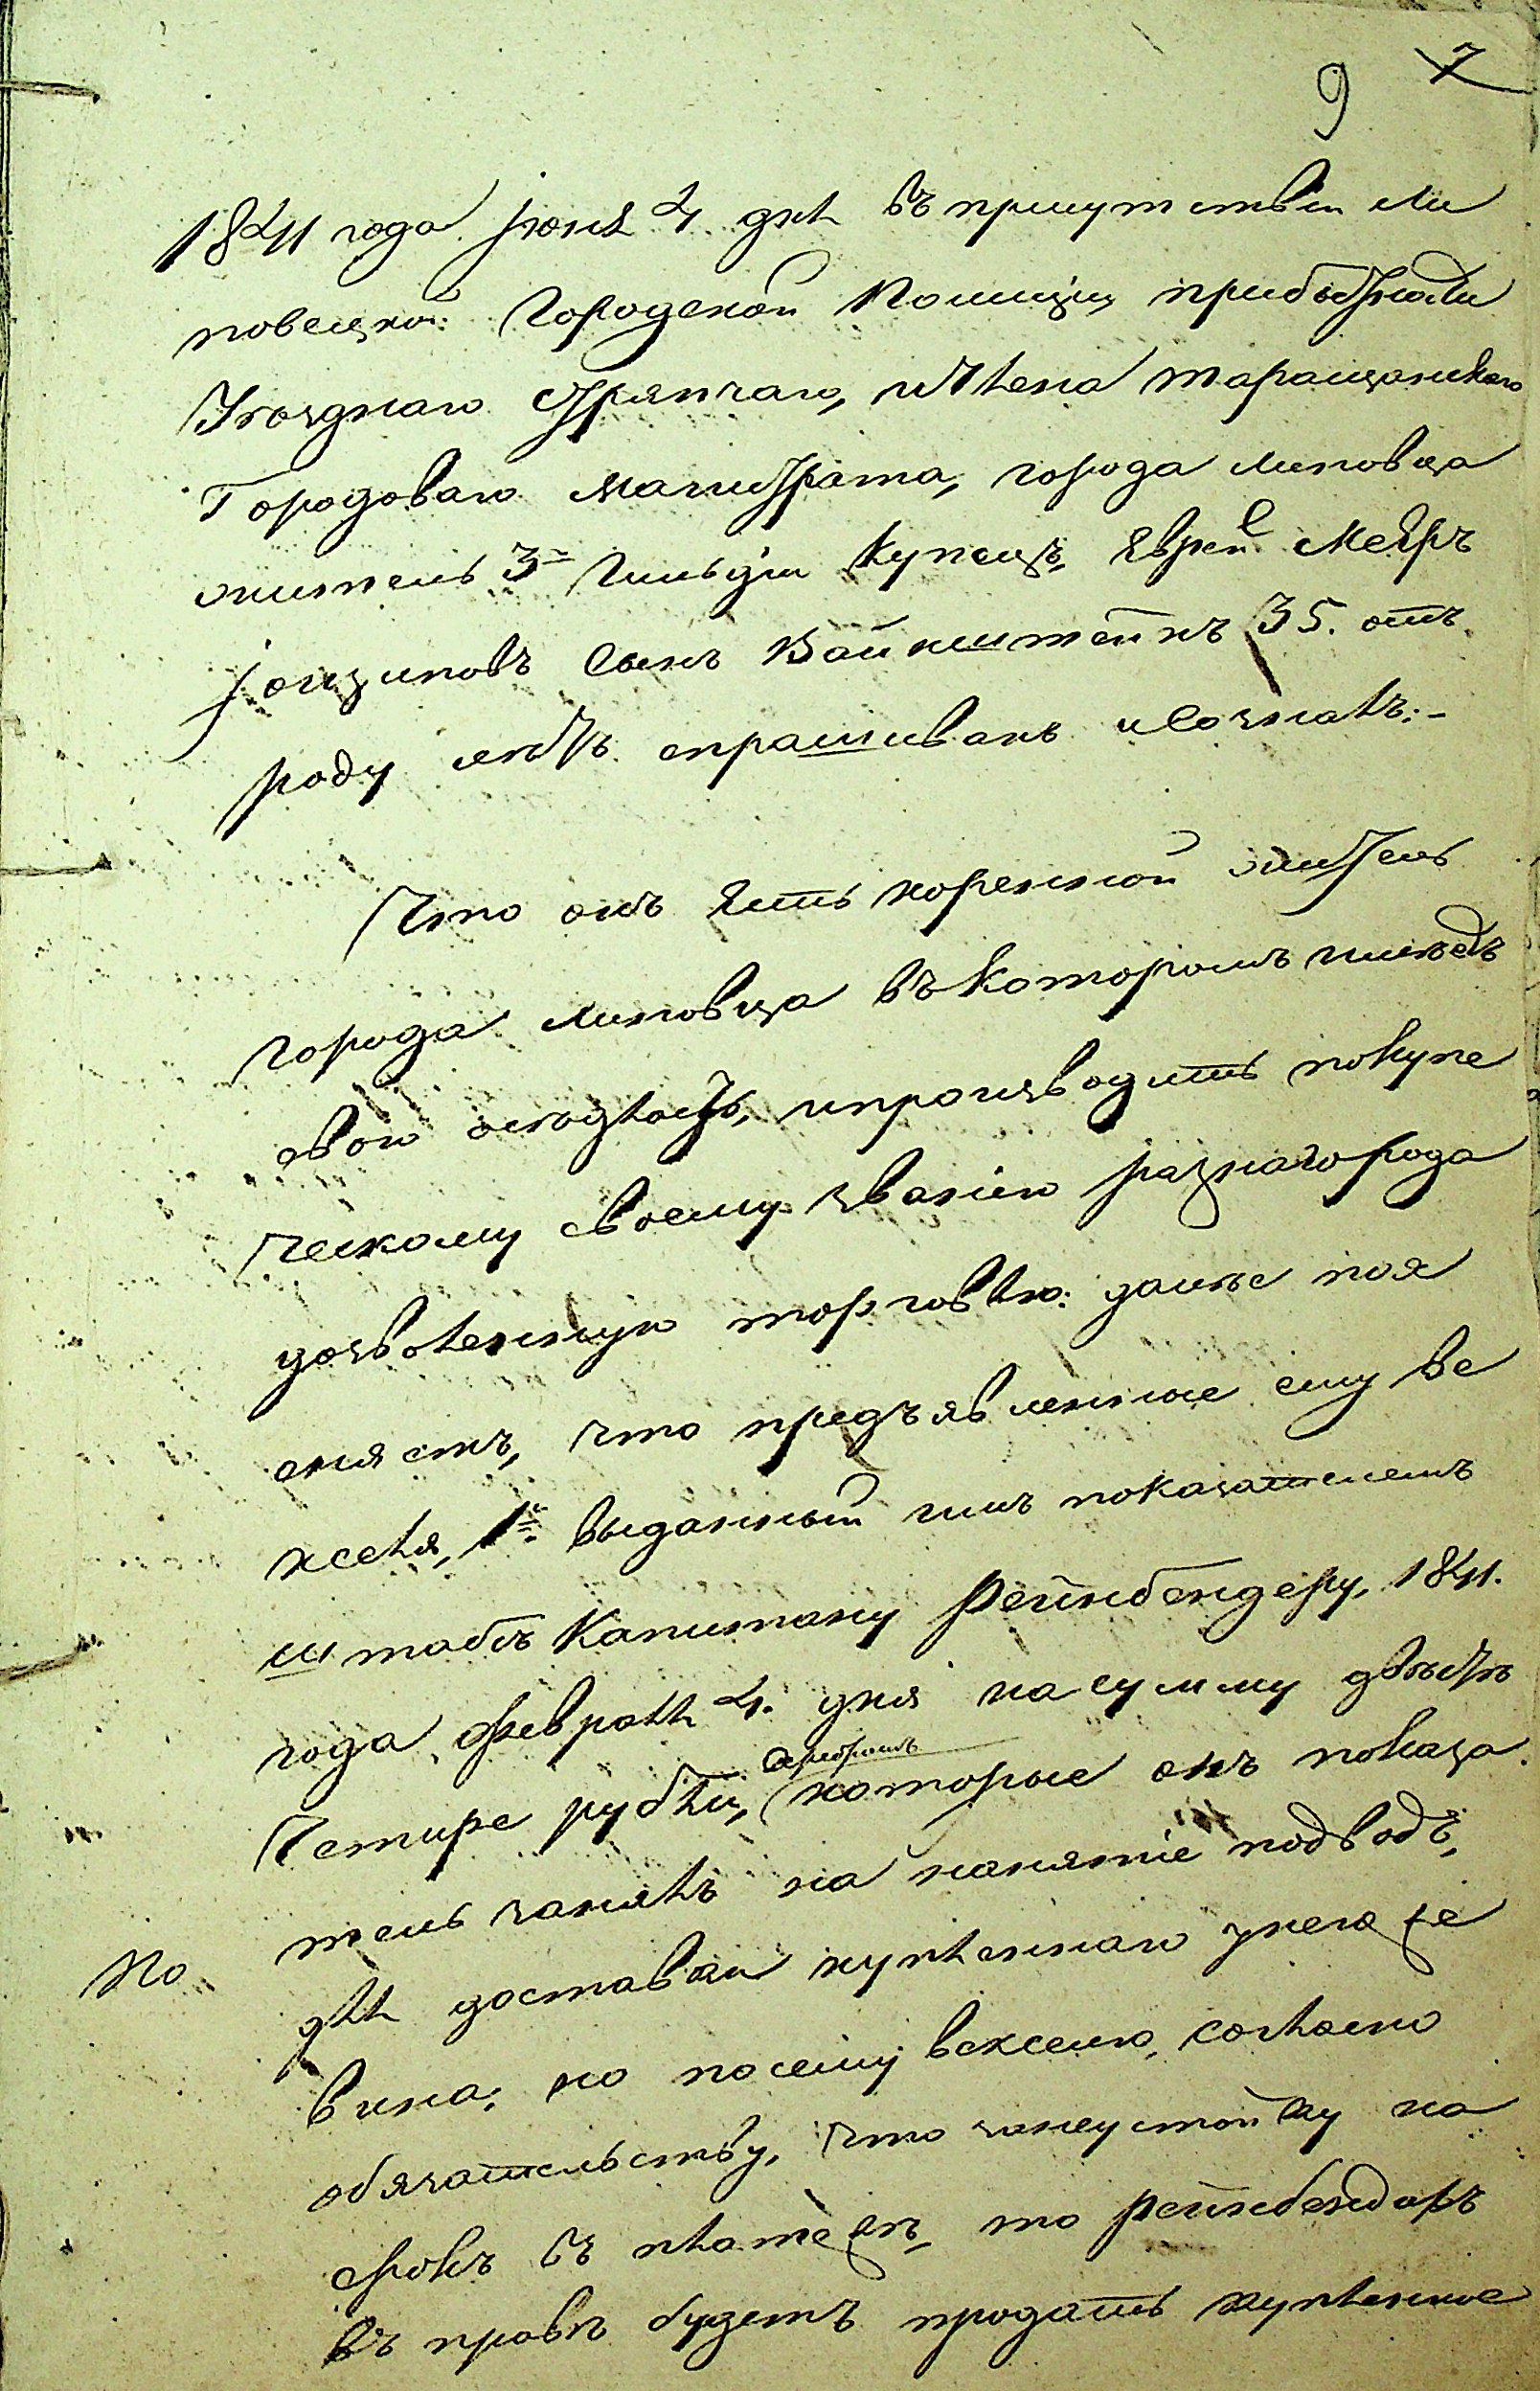 9 7
1841 года Іюня 4 дня въ присутствіи Ли
повецкой Городской Полиціи, прибытности
Уезднаго Стряпчаго, и Члена Таращанскаго
Городоваго Магистрата, города Липовца
житель 3й Гильдіи Купецъ, Еврей Мееръ
Іоциповъ Сынъ Вайнштейнъ 35. отъ
роду летъ спрашиванъ и Созналъ:-
Что онъ Есть коренной житель
города Липовца въ которомъ имеетъ
свою оседлость, и производитъ по купе
ческому своему званію разнаго рода
дозволенную торговлю: далее поя
сняетъ, что предъявленные ему Ве
кселя, 1й выданный имъ показателемъ
штабсъ Капитану Рейнбендеру, 1841.
года февраля 4. дня на сумму двести
Четыре рубли, серебромъ которые онъ показа
тель занялъ на нанятіе подводъ,
для доставки купленнаго у него же
вина; но по сему векселю, согласно
По
обязательству, что за неустойку на
срокъ въ платеже, то Рейнбендеръ
въ праве будетъ продать купленное